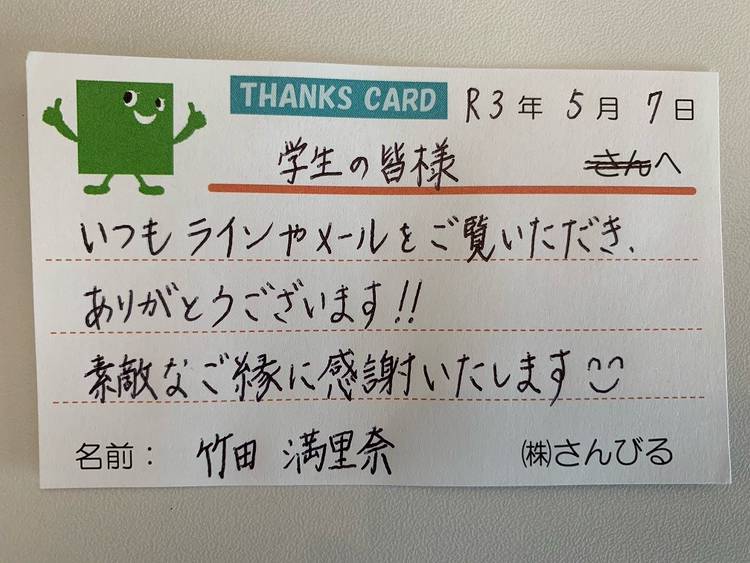 THANKS CARD R3年 5月 7日
学生の皆様 さんへ
いつもラインやメールをご覧いただき、
ありがとうございます!!
素敵なご縁に感謝いたします
名前： 竹田 満里奈 ㈱さんびる